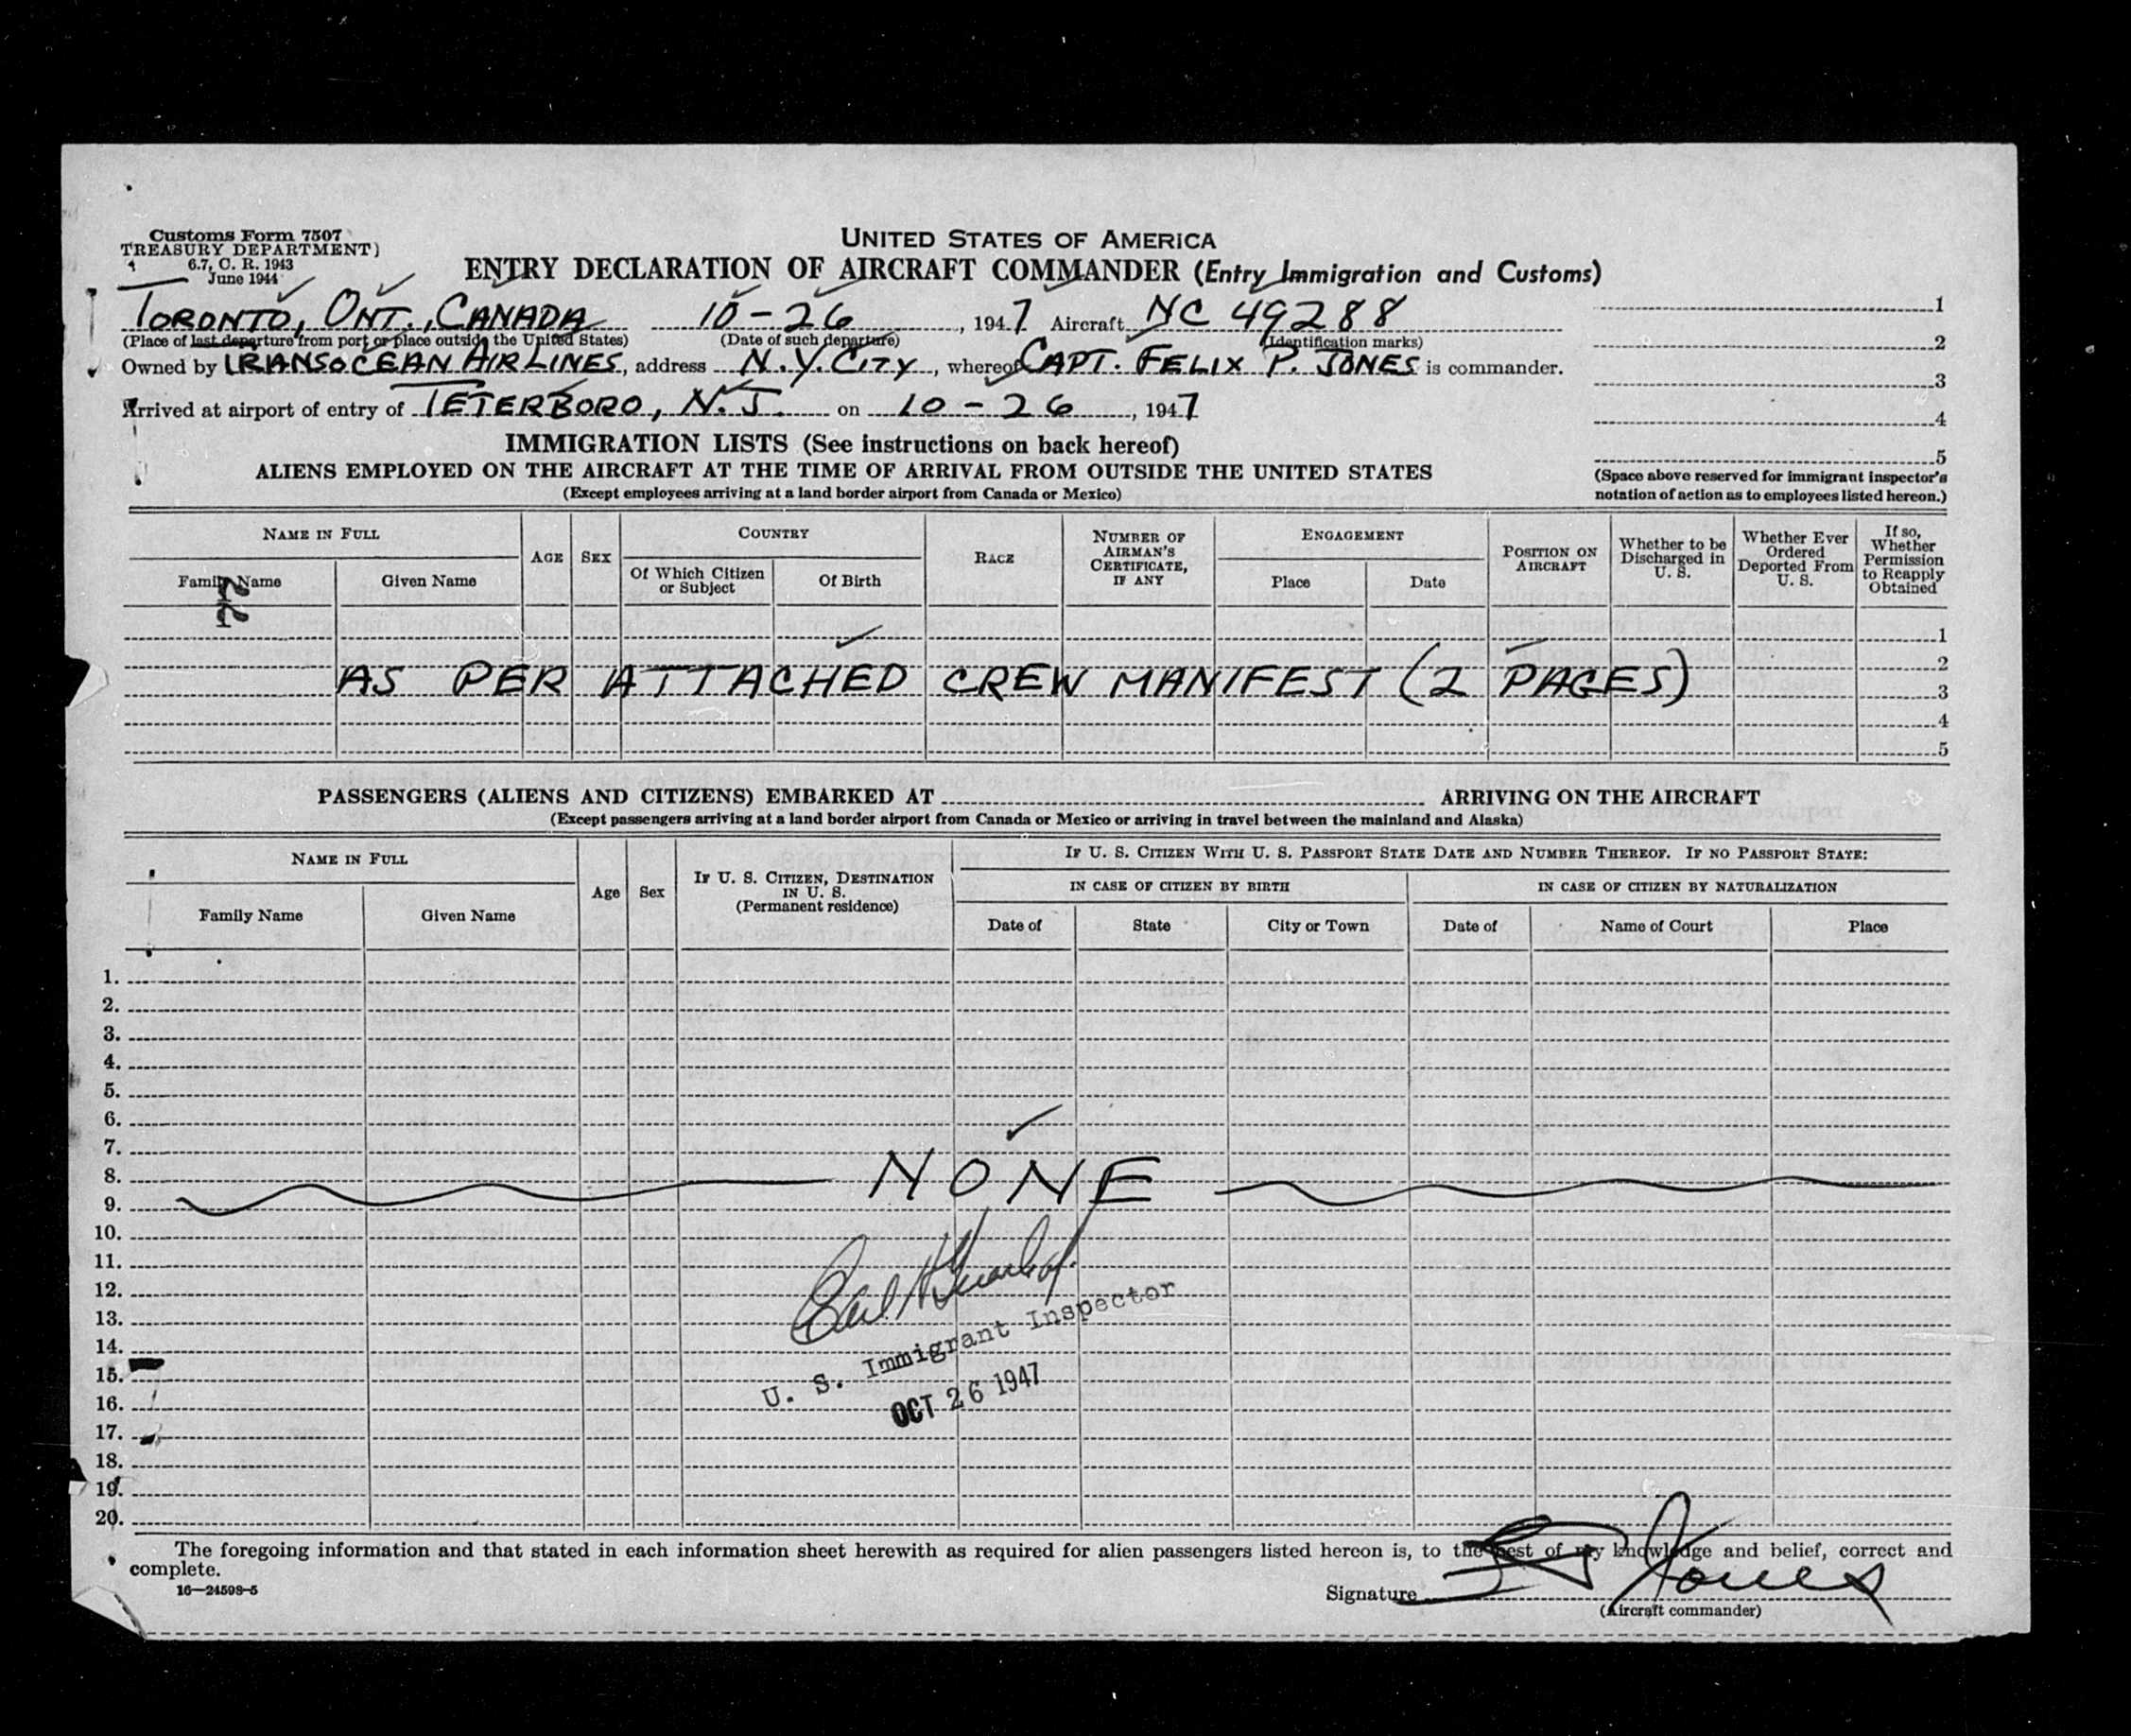 Customs Form 7507
TREASURY DEPARTMENT)
6.7, C. R. 1943
June 1944
UNITED STATES OF AMERICA
ENTRY DECLARATION OF AIRCRAFT COMMANDER (Entry Immigration and Customs)
TORONTO, ONT., CANADA 10-26, 1947 Aircraft NC 49288
(Place of last departure from port or place outside the United States) (Date of such departure) (Identification marks)
Owned by TRANSOCEAN AIRLINES, address N.Y. CITY, whereof CAPT. FELIX P. JONES is commander.
Arrived at airport of entry of TETERBORO, N.J. on 10-26, 1947
1
2
3
4
5
(Space above reserved for immigrant inspector's
notation of action as to employees listed hereon.)
IMMIGRATION LISTS (See instructions on back hereof)
ALIENS EMPLOYED ON THE AIRCRAFT AT THE TIME OF ARRIVAL FROM OUTSIDE THE UNITED STATES
(Except employees arriving at a land border airport from Canada or Mexico)
NAME IN FULL
Family Name
Given Name
AGE
SEX
COUNTRY
Of Which Citizen
or Subject
Of Birth
RACE
NUMBER OF
AIRMAN'S
CERTIFICATE,
IF ANY
ENGAGEMENT
Place
Date
POSITION ON
AIRCRAFT
Whether to be
Discharged in
U. S.
Whether Ever
Ordered
Deported From
U. S.
If so,
Whether
Permission
to Reapply
Obtained
1
2
AS PER ATTACHED CREW MANIFEST (2 PAGES)
3
4
5
PASSENGERS (ALIENS AND CITIZENS) EMBARKED AT ARRIVING ON THE AIRCRAFT
(Except passengers arriving at a land border airport from Canada or Mexico or arriving in travel between the mainland and Alaska)
NAME IN FULL
Family Name
Given Name
Age
Sex
IF U. S. CITIZEN, DESTINATION
IN U. S.
(Permanent residence)
IF U. S. CITIZEN WITH U. S. PASSPORT STATE DATE AND NUMBER THEREOF. IF NO PASSPORT STATE:
IN CASE OF CITIZEN BY BIRTH
IN CASE OF CITIZEN BY NATURALIZATION
Date of
State
City or Town
Date of
Name of Court
Place
1.
2.
3.
4.
5.
6.
7.
8.
NONE
9.
10.
11.
12.
13.
14.
15.
16.
17.
18.
19.
20.
U. S. Immigrant Inspector
OCT 26 1947
The foregoing information and that stated in each information sheet herewith as required for alien passengers listed hereon is, to the best of my knowledge and belief, correct and
complete.
16—24598-5
Signature Jones
(Aircraft commander)